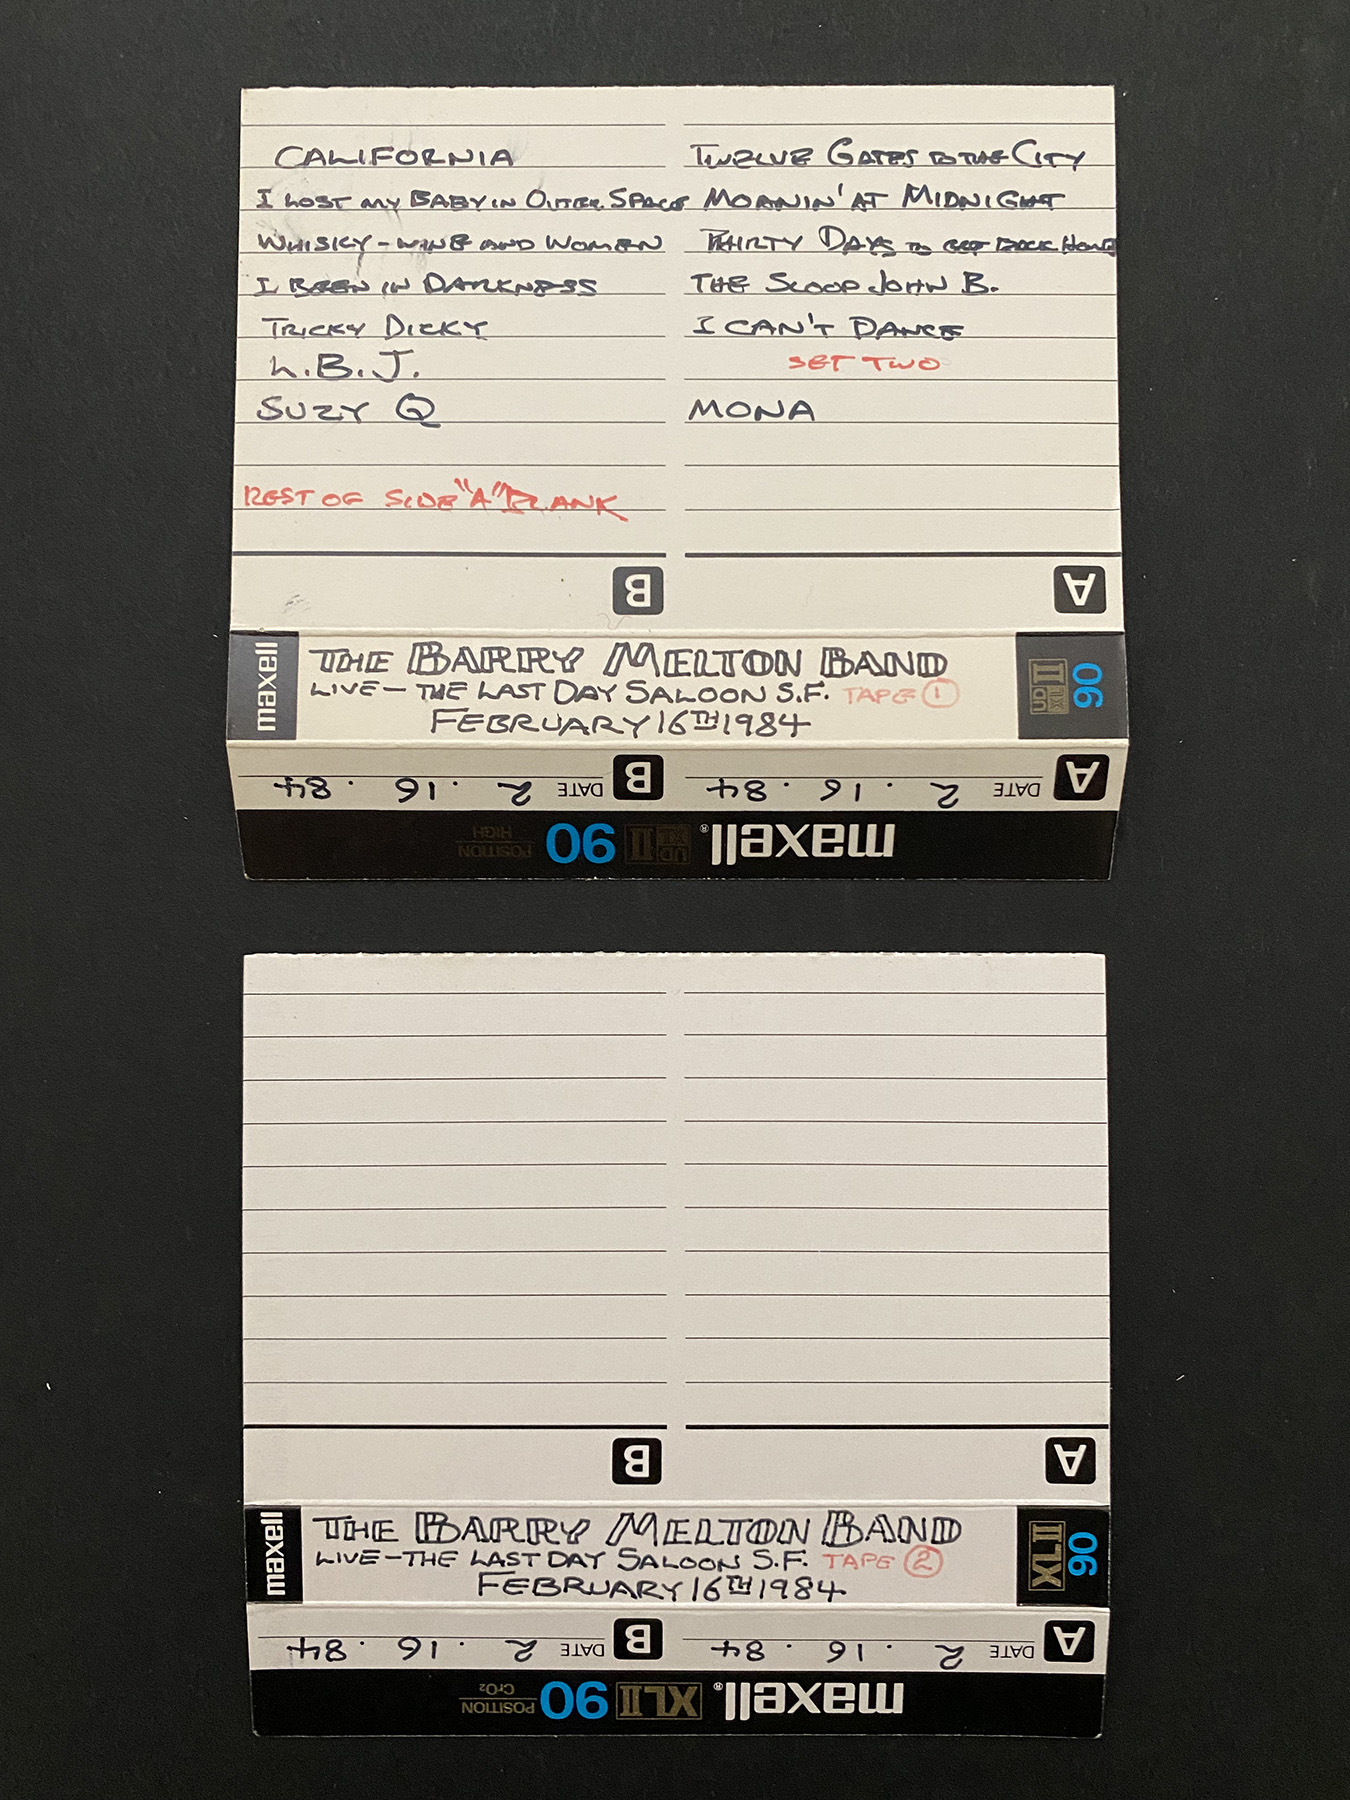 CALIFORNIA
I LOST MY BABY IN OUTER SPACE
WHISKY - WINE AND WOMEN
I BEEN IN DARKNESS
TRICKY DICKY
L.B.J.
SUZY Q
REST OF SIDE "A" BLANK
TWELVE GATES TO THE CITY
MOANIN' AT MIDNIGHT
THIRTY DAYS TO GET BACK HOME
THE SLOOP JOHN B.
I CAN'T DANCE
SET TWO
MONA
B
A
maxell
THE BARRY MELTON BAND
LIVE - THE LAST DAY SALOON S.F. TAPE 1
FEBRUARY 16TH 1984
UD XL II 90
A DATE 2 . 16 . 84
B DATE 2 . 16 . 84
maxell® UD XL II 90 POSITION HIGH
B
A
maxell
THE BARRY MELTON BAND
LIVE - THE LAST DAY SALOON S.F. TAPE 2
FEBRUARY 16TH 1984
XLII 90
A DATE 2 . 16 . 84
B DATE 2 . 16 . 84
maxell® XLII 90 POSITION CrO₂